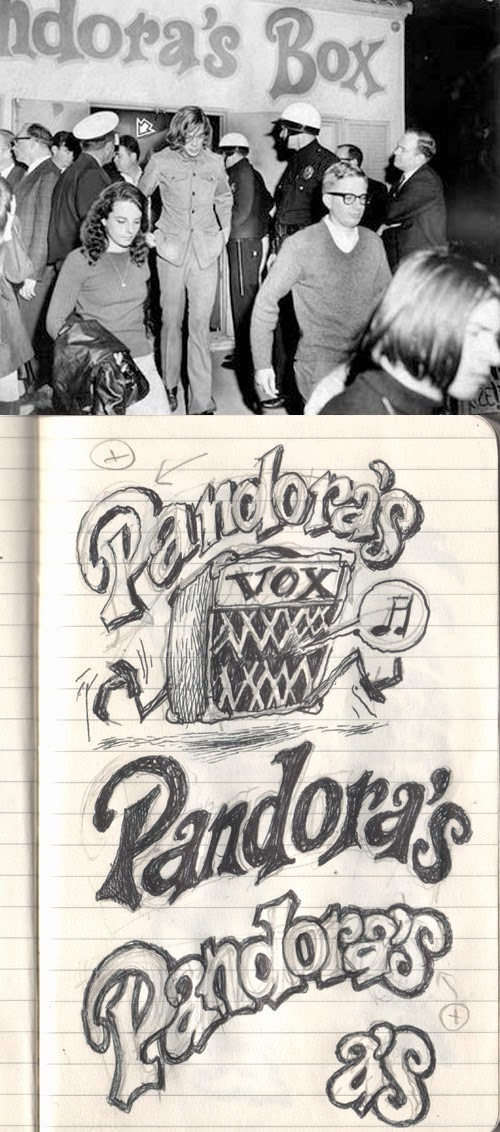 ndora's Box
Pandora's
VOX
Pandora's
Pandora's
a's